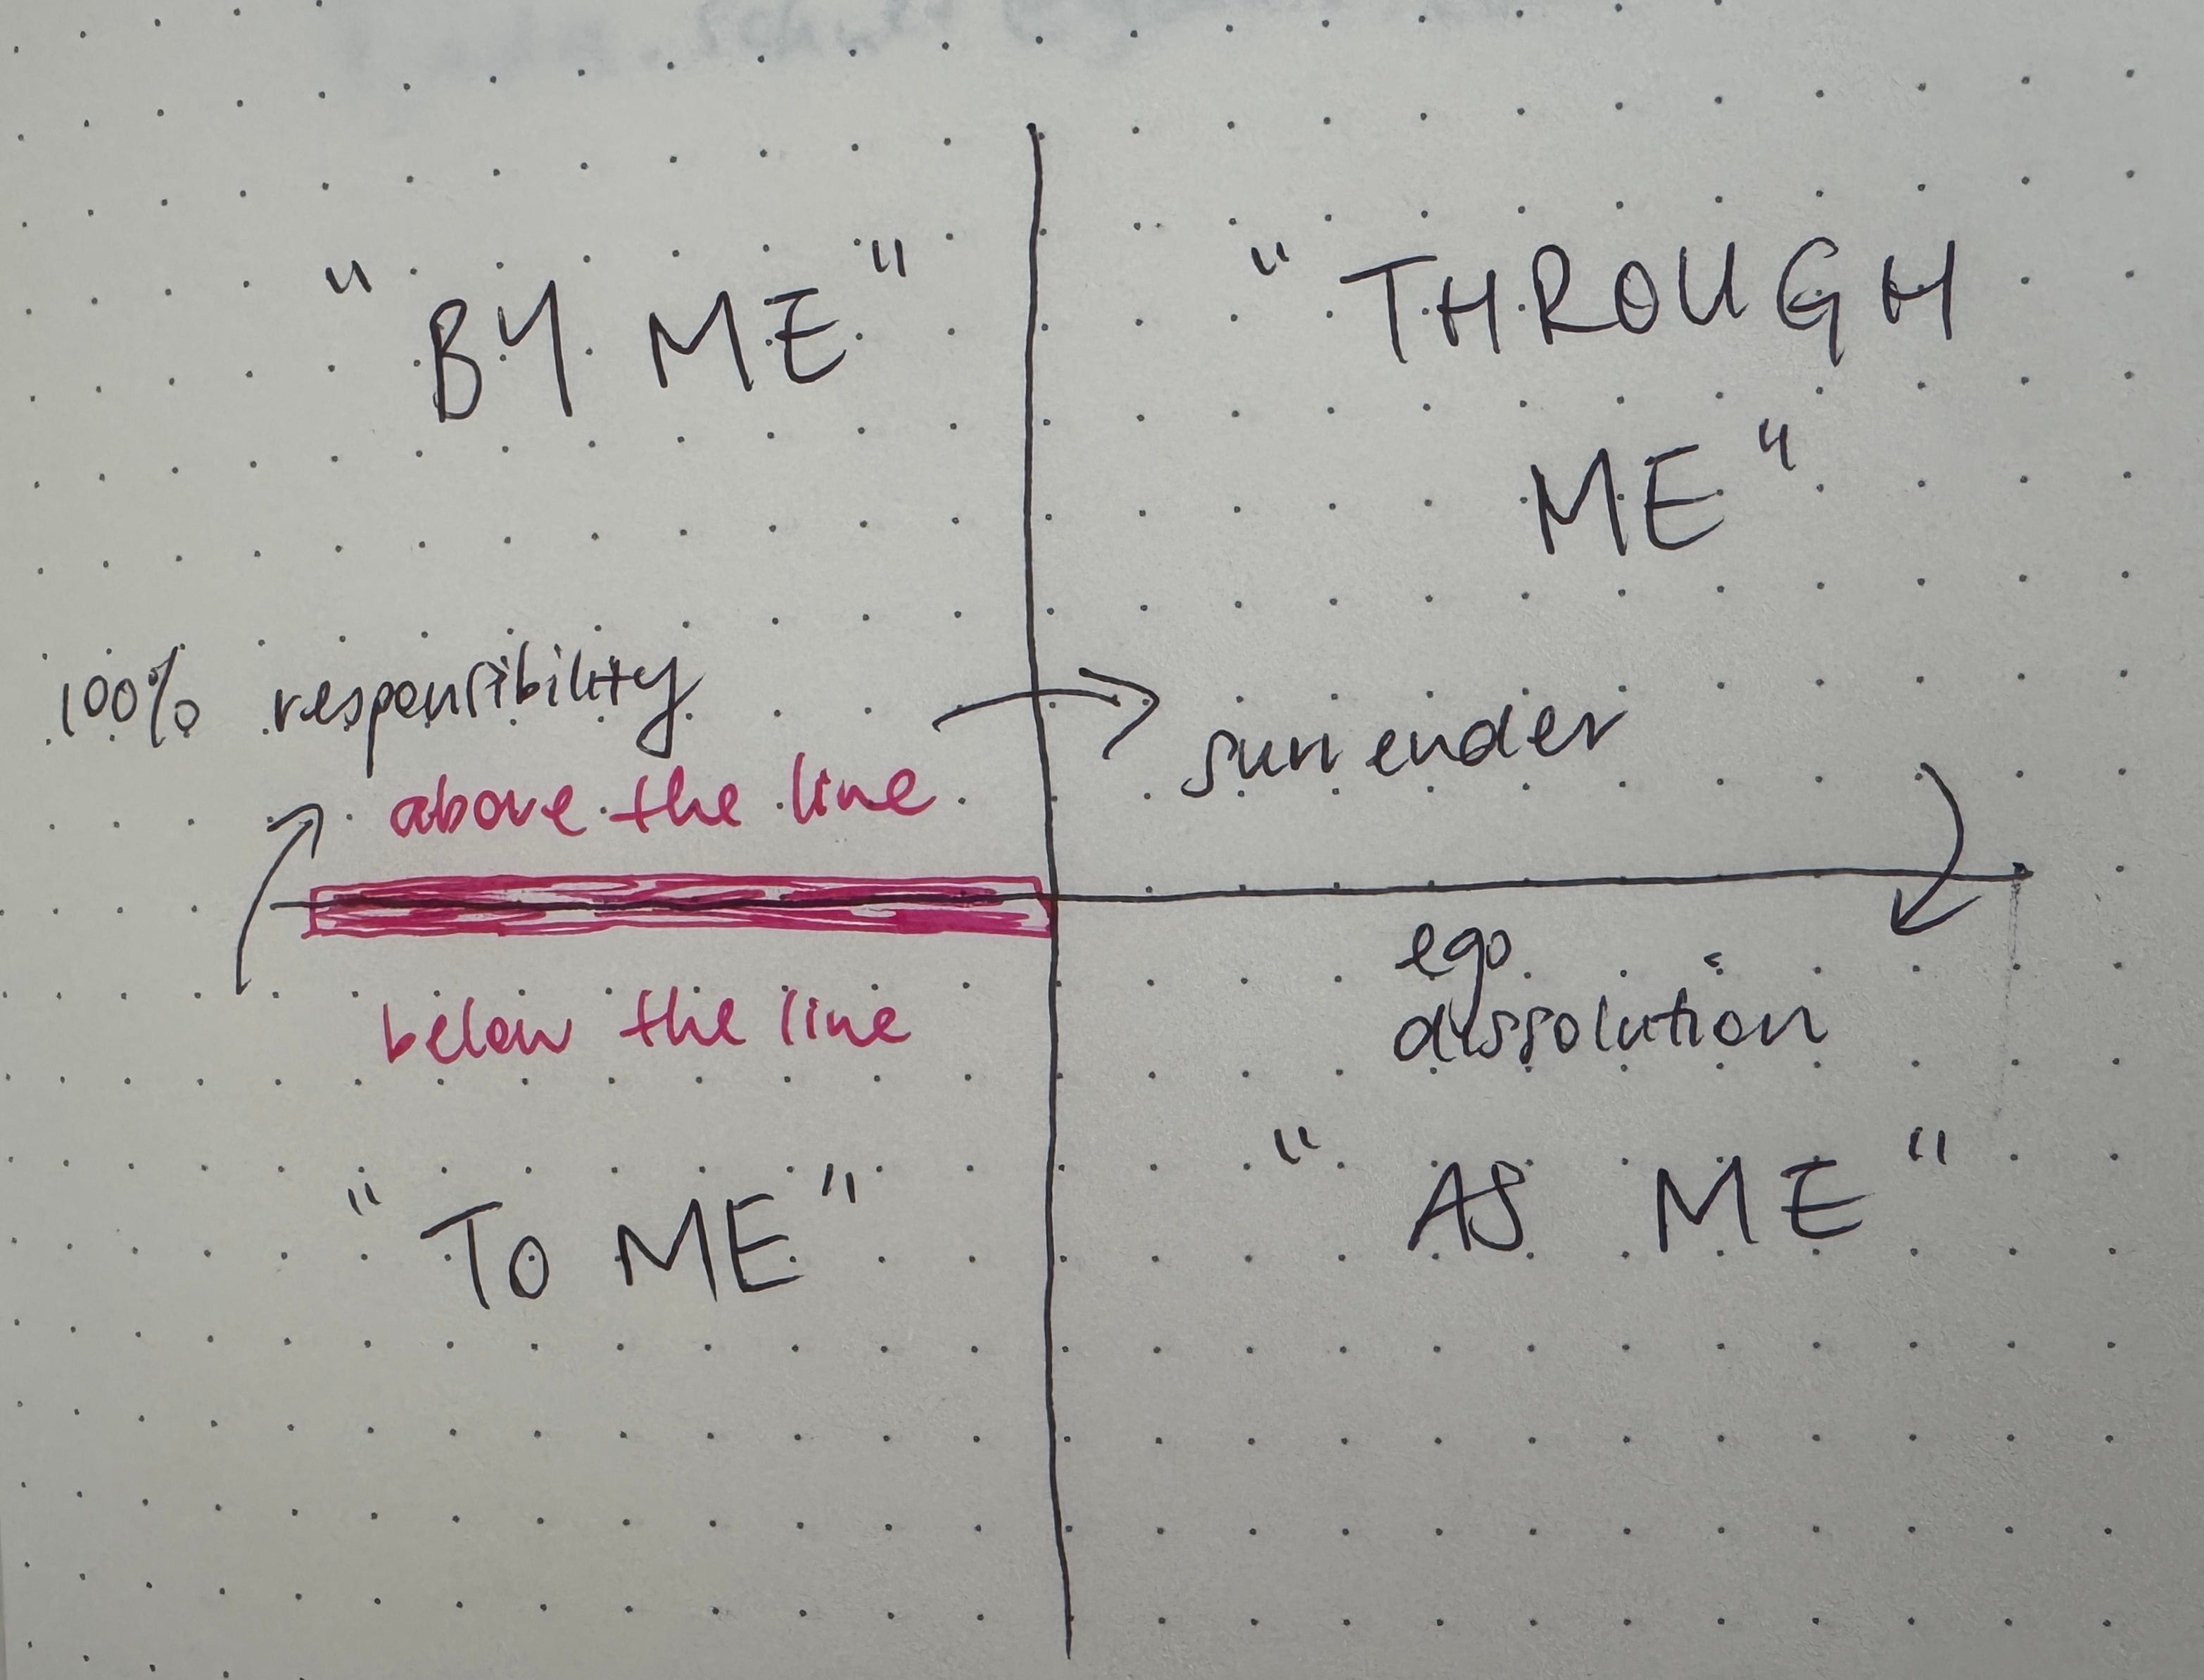 "BY ME"
"THROUGH
ME"
100% responsibility
surrender
above the line
below the line
ego
dissolution
"TO ME"
"AS ME"